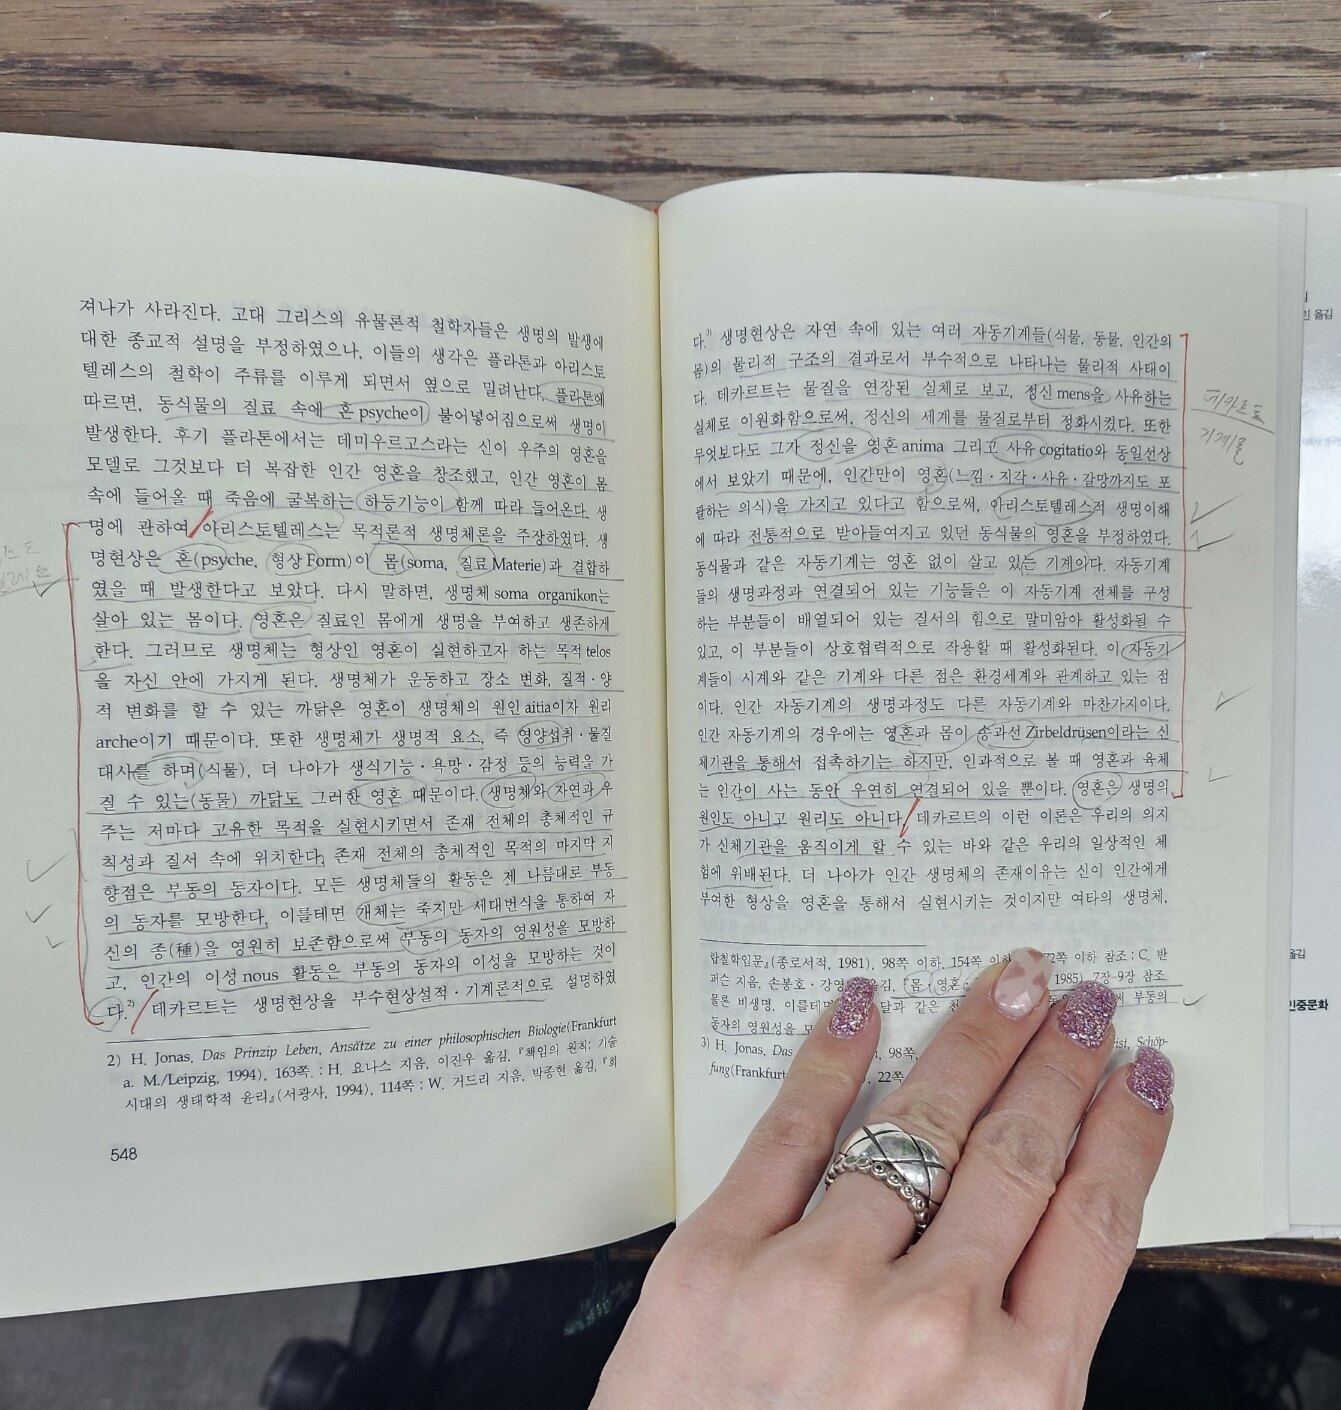 져나가 사라진다. 고대 그리스의 유물론적 철학자들은 생명의 발생에
대한 종교적 설명을 부정하였으나, 이들의 생각은 플라톤과 아리스토
텔레스의 철학이 주류를 이루게 되면서 옆으로 밀려난다. 플라톤에
따르면, 동식물의 질료 속에 혼psyche이 불어넣어짐으로써 생명이
발생한다. 후기 플라톤에서는 데미우르고스라는 신이 우주의 영혼을
모델로 그것보다 더 복잡한 인간 영혼을 창조했고, 인간 영혼이 몸
속에 들어올 때 죽음에 굴복하는 하등기능이 함께 따라 들어온다. 생
명에 관하여 아리스토텔레스는 목적론적 생명체론을 주장하였다. 생
명현상은 혼(psyche, 형상Form)이 몸(soma, 질료Materie)과 결합하
였을 때 발생한다고 보았다. 다시 말하면, 생명체soma organikon는
살아 있는 몸이다. 영혼은 질료인 몸에게 생명을 부여하고 생존하게
한다. 그러므로 생명체는 형상인 영혼이 실현하고자 하는 목적telos
을 자신 안에 가지게 된다. 생명체가 운동하고 장소 변화, 질적·양
적 변화를 할 수 있는 까닭은 영혼이 생명체의 원인aitia이자 원리
arche이기 때문이다. 또한 생명체가 생명적 요소, 즉 영양섭취·물질
대사를 하며(식물), 더 나아가 생식기능·욕망·감정 등의 능력을 가
질 수 있는(동물) 까닭도 그러한 영혼 때문이다. 생명체와 자연과 우
주는 저마다 고유한 목적을 실현시키면서 존재 전체의 총체적인 규
칙성과 질서 속에 위치한다. 존재 전체의 총체적인 목적의 마지막 지
향점은 부동의 동자이다. 모든 생명체들의 활동은 제 나름대로 부동
의 동자를 모방한다. 이를테면 개체는 죽지만 세대번식을 통하여 자
신의 종(種)을 영원히 보존함으로써 부동의 동자의 영원성을 모방하
고, 인간의 이성nous 활동은 부동의 동자의 이성을 모방하는 것이
다.2) 데카르트는 생명현상을 부수현상설적·기계론적으로 설명하였
2) H. Jonas, Das Prinzip Leben, Ansätze zu einer philosophischen Biologie(Frankfurt
a. M./Leipzig, 1994), 163쪽. : H. 요나스 지음, 이진우 옮김, 『책임의 원칙: 기술
시대의 생태학적 윤리』(서광사, 1994), 114쪽 ; W. 거드리 지음, 박종현 옮김, 『희
548
다.3) 생명현상은 자연 속에 있는 여러 자동기계들(식물, 동물, 인간의
몸)의 물리적 구조의 결과로서 부수적으로 나타나는 물리적 사태이
다. 데카르트는 물질을 연장된 실체로 보고, 정신mens을 사유하는
실체로 이원화함으로써, 정신의 세계를 물질로부터 정화시켰다. 또한
무엇보다도 그가 정신을 영혼anima 그리고 사유cogitatio와 동일선상
에서 보았기 때문에, 인간만이 영혼(느낌·지각·사유·갈망까지도 포
괄하는 의식)을 가지고 있다고 함으로써, 아리스토텔레스적 생명이해
에 따라 전통적으로 받아들여지고 있던 동식물의 영혼을 부정하였다.
동식물과 같은 자동기계는 영혼 없이 살고 있는 기계이다. 자동기계
들의 생명과정과 연결되어 있는 기능들은 이 자동기계 전체를 구성
하는 부분들이 배열되어 있는 질서의 힘으로 말미암아 활성화될 수
있고, 이 부분들이 상호협력적으로 작용할 때 활성화된다. 이 자동기
계들이 시계와 같은 기계와 다른 점은 환경세계와 관계하고 있는 점
이다. 인간 자동기계의 생명과정도 다른 자동기계와 마찬가지이다.
인간 자동기계의 경우에는 영혼과 몸이 송과선Zirbeldrüsen이라는 신
체기관을 통해서 접촉하기는 하지만, 인과적으로 볼 때 영혼과 육체
는 인간이 사는 동안 우연히 연결되어 있을 뿐이다. 영혼은 생명의
원인도 아니고 원리도 아니다. 데카르트의 이런 이론은 우리의 의지
가 신체기관을 움직이게 할 수 있는 바와 같은 우리의 일상적인 체
험에 위배된다. 더 나아가 인간 생명체의 존재이유는 신이 인간에게
부여한 형상을 영혼을 통해서 실현시키는 것이지만 여타의 생명체,
랍철학입문』(종로서적, 1981), 98쪽 이하, 154쪽 이하 72쪽 이하 참조 ; C. 반
퍼슨 지음, 손봉호·강영 옮김, 『몸·영혼 1985), 7장-9장 참조.
물론 비생명, 이를테면 달과 같은 천 부동의
동자의 영원성을 모
3) H. Jonas, Das 98쪽, Schöp-
fung(Frankfurt 22쪽
데카르트
기계론
옮김
옮김
민중문화